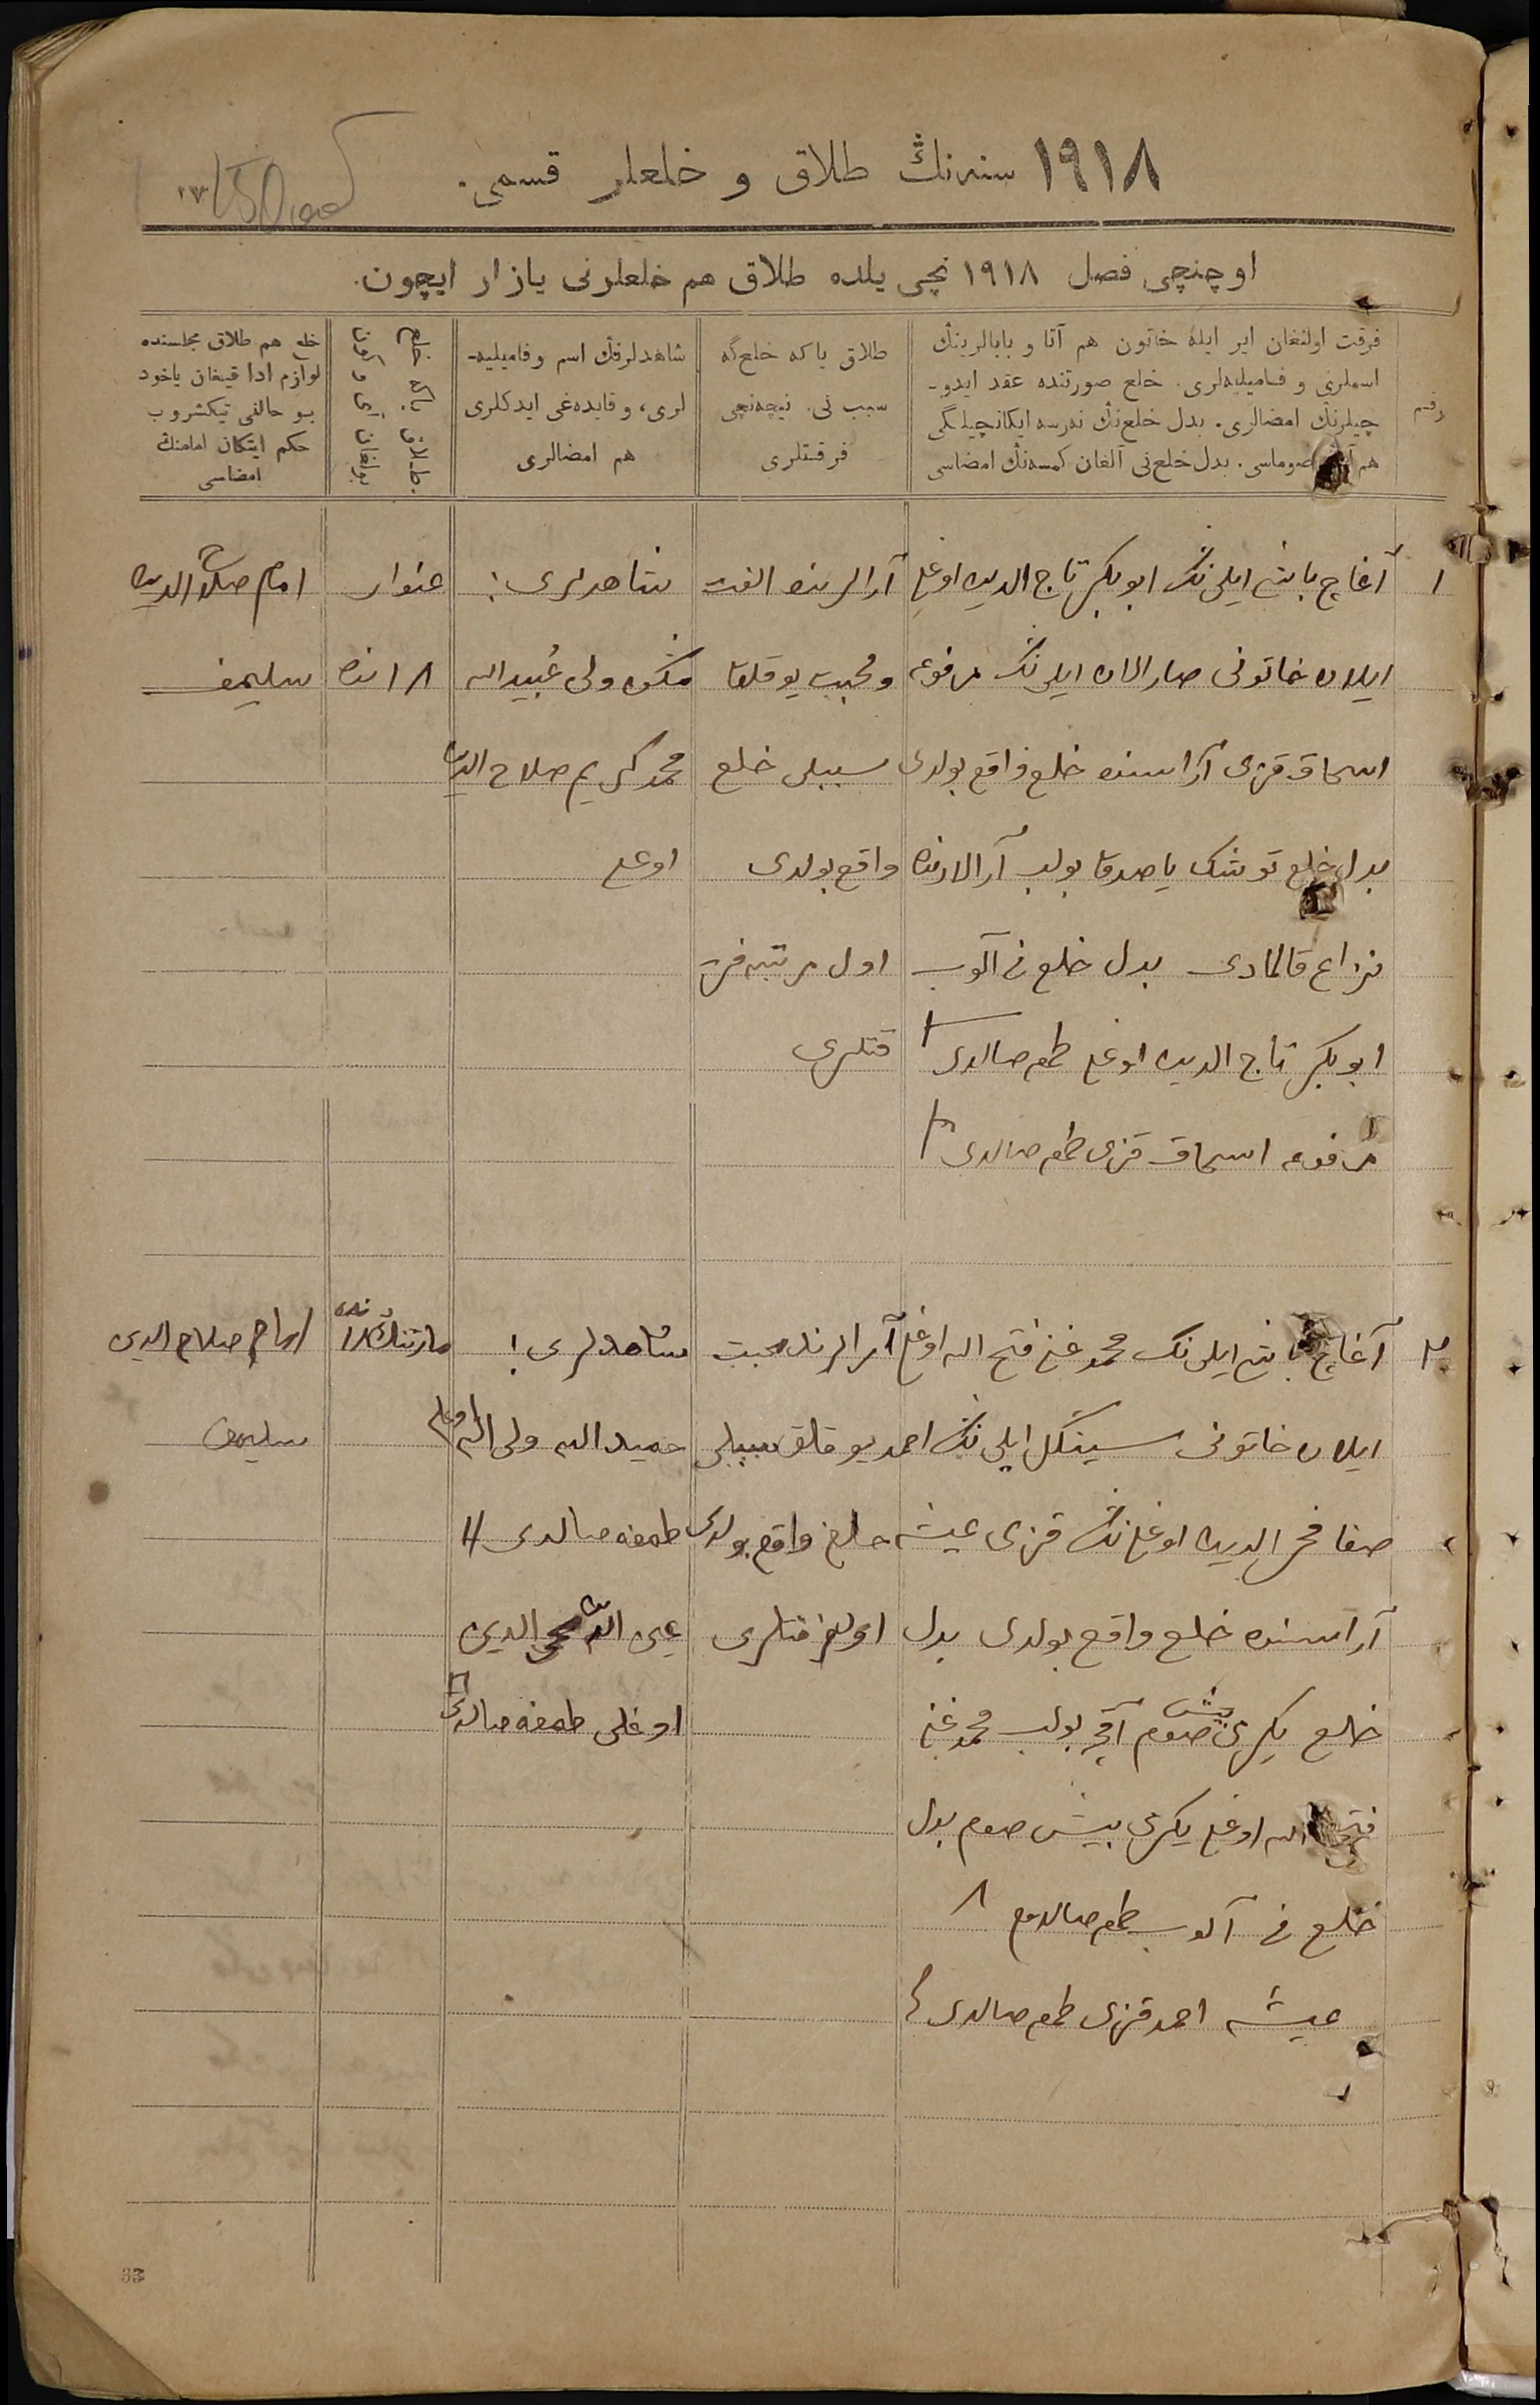 ١٩١٨ سنەنڭ طلاق و خلعلر قسمی.
اوچنچی فصل ١٩١٨ نچی یلده طلاق هم خلعلرنی یازار ایچون.
رقم
فرقت اولنغان ایر ایلە خاتون هم آتا و بابالرینڭ
اسملری و فامیلیەلری. خلع صورتنده عقد ایدو-
چیلرنڭ امضالری. بدل خلع‌نڭ نەرسە ایکانچیلگی
هم صوماسی. بدل خلع‌نی آلغان کمسەنڭ امضاسی
طلاق یا کە خلع‌گە
سبب نی. نیچەنچی
فرقتلری
شاهدلرنڭ اسم و فامیلیە-
لری، و قایده‌غی ایدکلری
هم امضالری
طلاق یاکە خلع
بولغان آی و کون
خلع هم طلاق مجلسنده
لوازم ادا قیلغان یاخود
بو حالنی تیکشروب
حکم ایتکان امامنڭ
امضاسی
١
آغاچ باش ایلی‌نڭ ابوبکر تاج الدین اوغلی
ایلان خاتونی ایلی‌نڭ مرفوعه
اسحاق قزی آراسنده خلع واقع بولدی
بدل خلع توشک یاصدق بولب آرالارنده
نزاع قالمادی بدل خلع نی آلوب
ابوبکر تاج الدین اوغلی طمغه صالدی
مرفوعه اسحاق قزی طمغه صالدی
آرالرینده الفت
و محبت یوقلق
سببلی خلع
واقع بولدی
اول مرتبه فر
قتلری
شاهدلری:
ولی عبیدالله
محمد کریم صلاح الدین
اوغلی
غنوار
١٨ نده
امام صلاح الدین
سلیموف
٢
آغاچ باش ایلی‌نڭ محمد غنی فتح الله اوغلی
ایلان خاتونی ایلی‌نڭ احمد
صفا فخر الدین اوغلی‌نڭ قزی عیشه
آراسنده خلع واقع بولدی بدل
خلع یکرمی بیش صوم آقچه بولب محمد غنی
فتح الله اوغلی یکرمی بیش صوم بدل
خلع نی آلوب طمغه صالدم
عیشه احمد قزی طمغه صالدی
آرالرنده محبت
یوقلق سببلی
خلع واقع بولدی
اولغی فرقتلری
شاهدلری:
حمید الله ولی الله اوغلی
طمغه صالدی
محی الدین
اوغلی طمغه صالدی
مارتنڭ نده
امام صلاح الدین
سلیموف
33